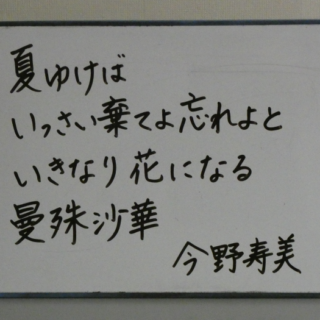 夏ゆけば
いっさい棄てよ忘れよと
いきなり花になる
曼珠沙華
今野寿美